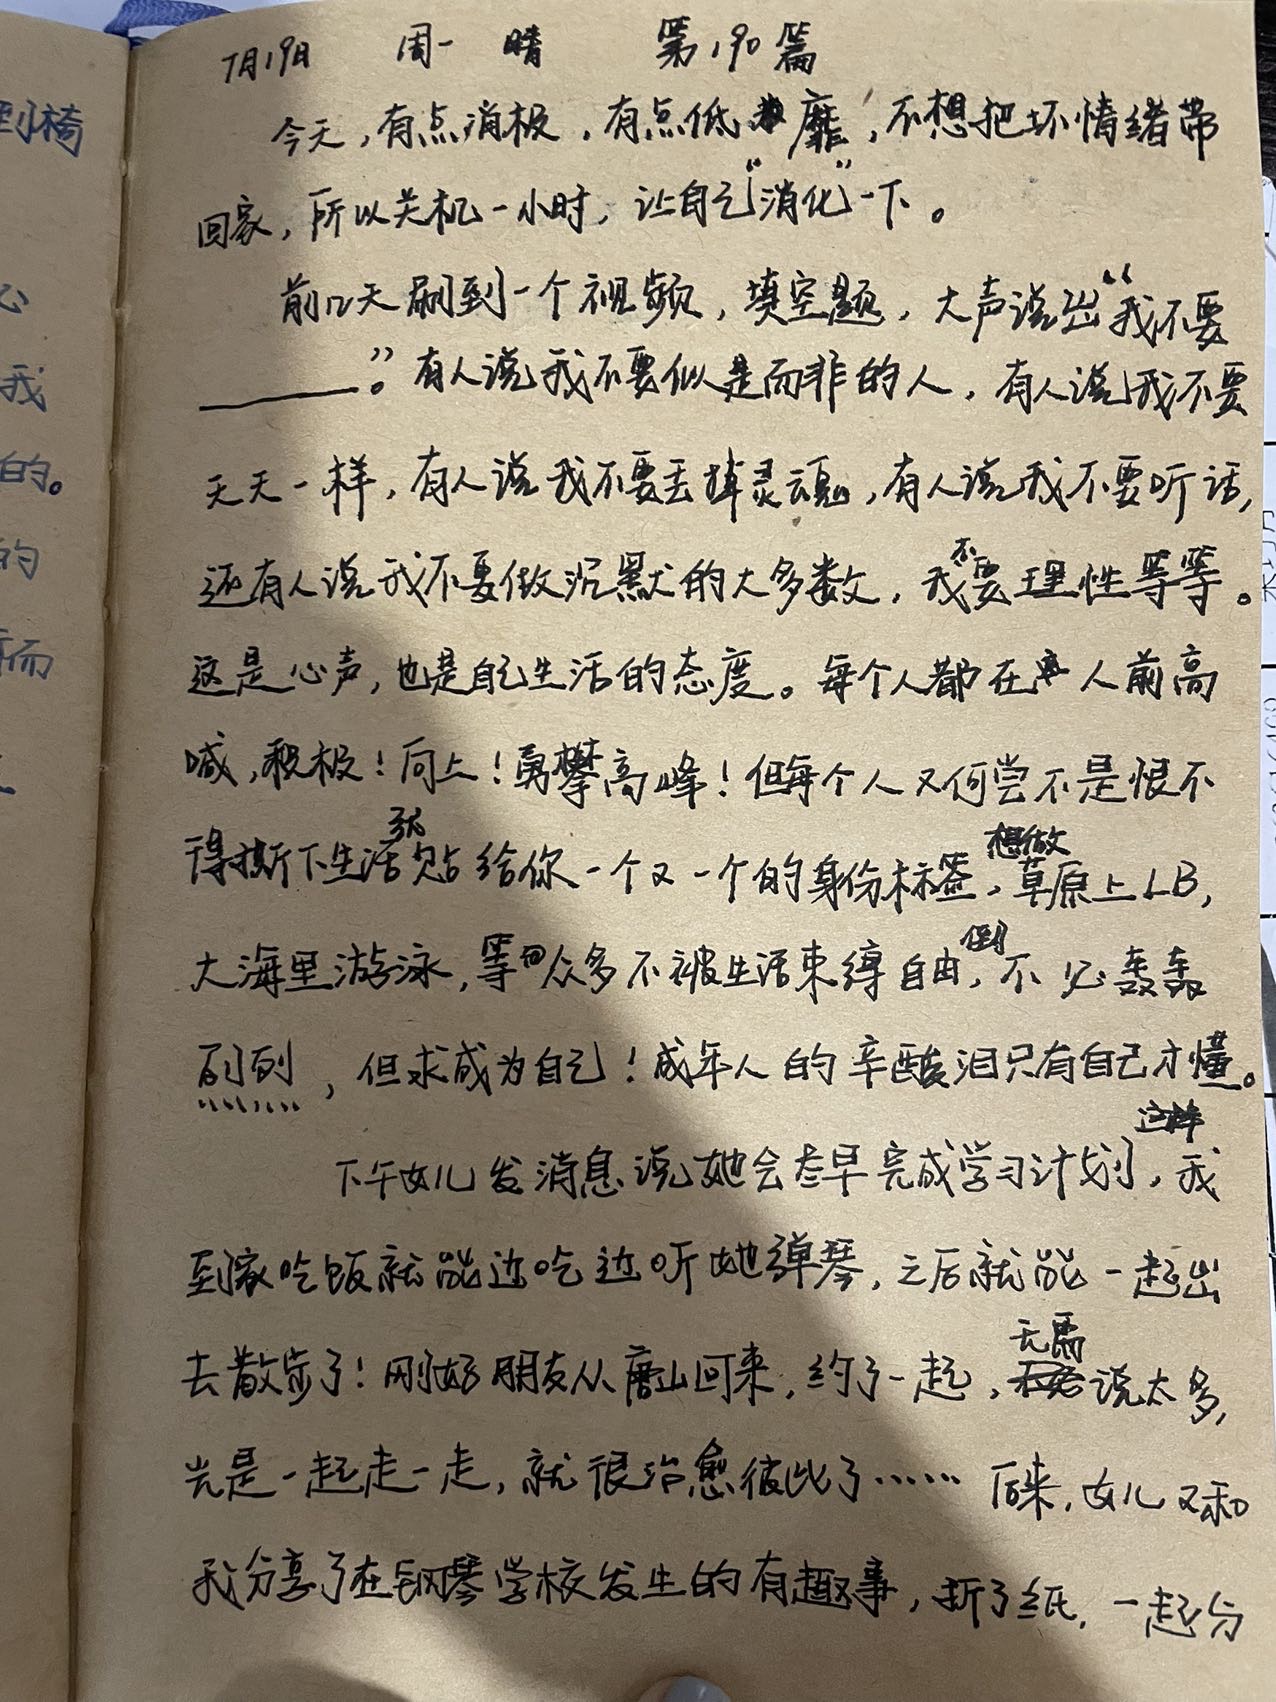 7月19日 周一 晴 第190篇
今天，有点消极，有点低靡，不想把坏情绪带
回家，所以关机一小时，让自己“消化”一下。
前几天刷到一个视频，填空题，大声说出“我不要
______”。有人说我不要似是而非的人，有人说我不要
天天一样，有人说我不要丢掉灵魂，有人说我不要听话，
还有人说我不要做沉默的大多数，我不要理性等等。
这是心声，也是自己生活的态度。每个人都在人前高
喊，积极！向上！勇攀高峰！但每个人又何尝不是恨不
得撕下生活强贴给你一个又一个的身份标签，想做草原上LB，
大海里游泳，等众多不被生活束缚自由，倒不必轰轰
烈烈，但求成为自己！成年人的辛酸泪只有自己才懂。
下午女儿发消息说她会尽早完成学习计划，这样我
到家吃饭就能边吃边听她弹琴，之后就能一起出
去散步了！刚好朋友从唐山回来，约了一起，无需说太多，
光是一起走一走，就很治愈彼此了……后来，女儿又和
我分享了在钢琴学校发生的有趣事，折了纸，一起分
到椅
心
我
的。
的
而